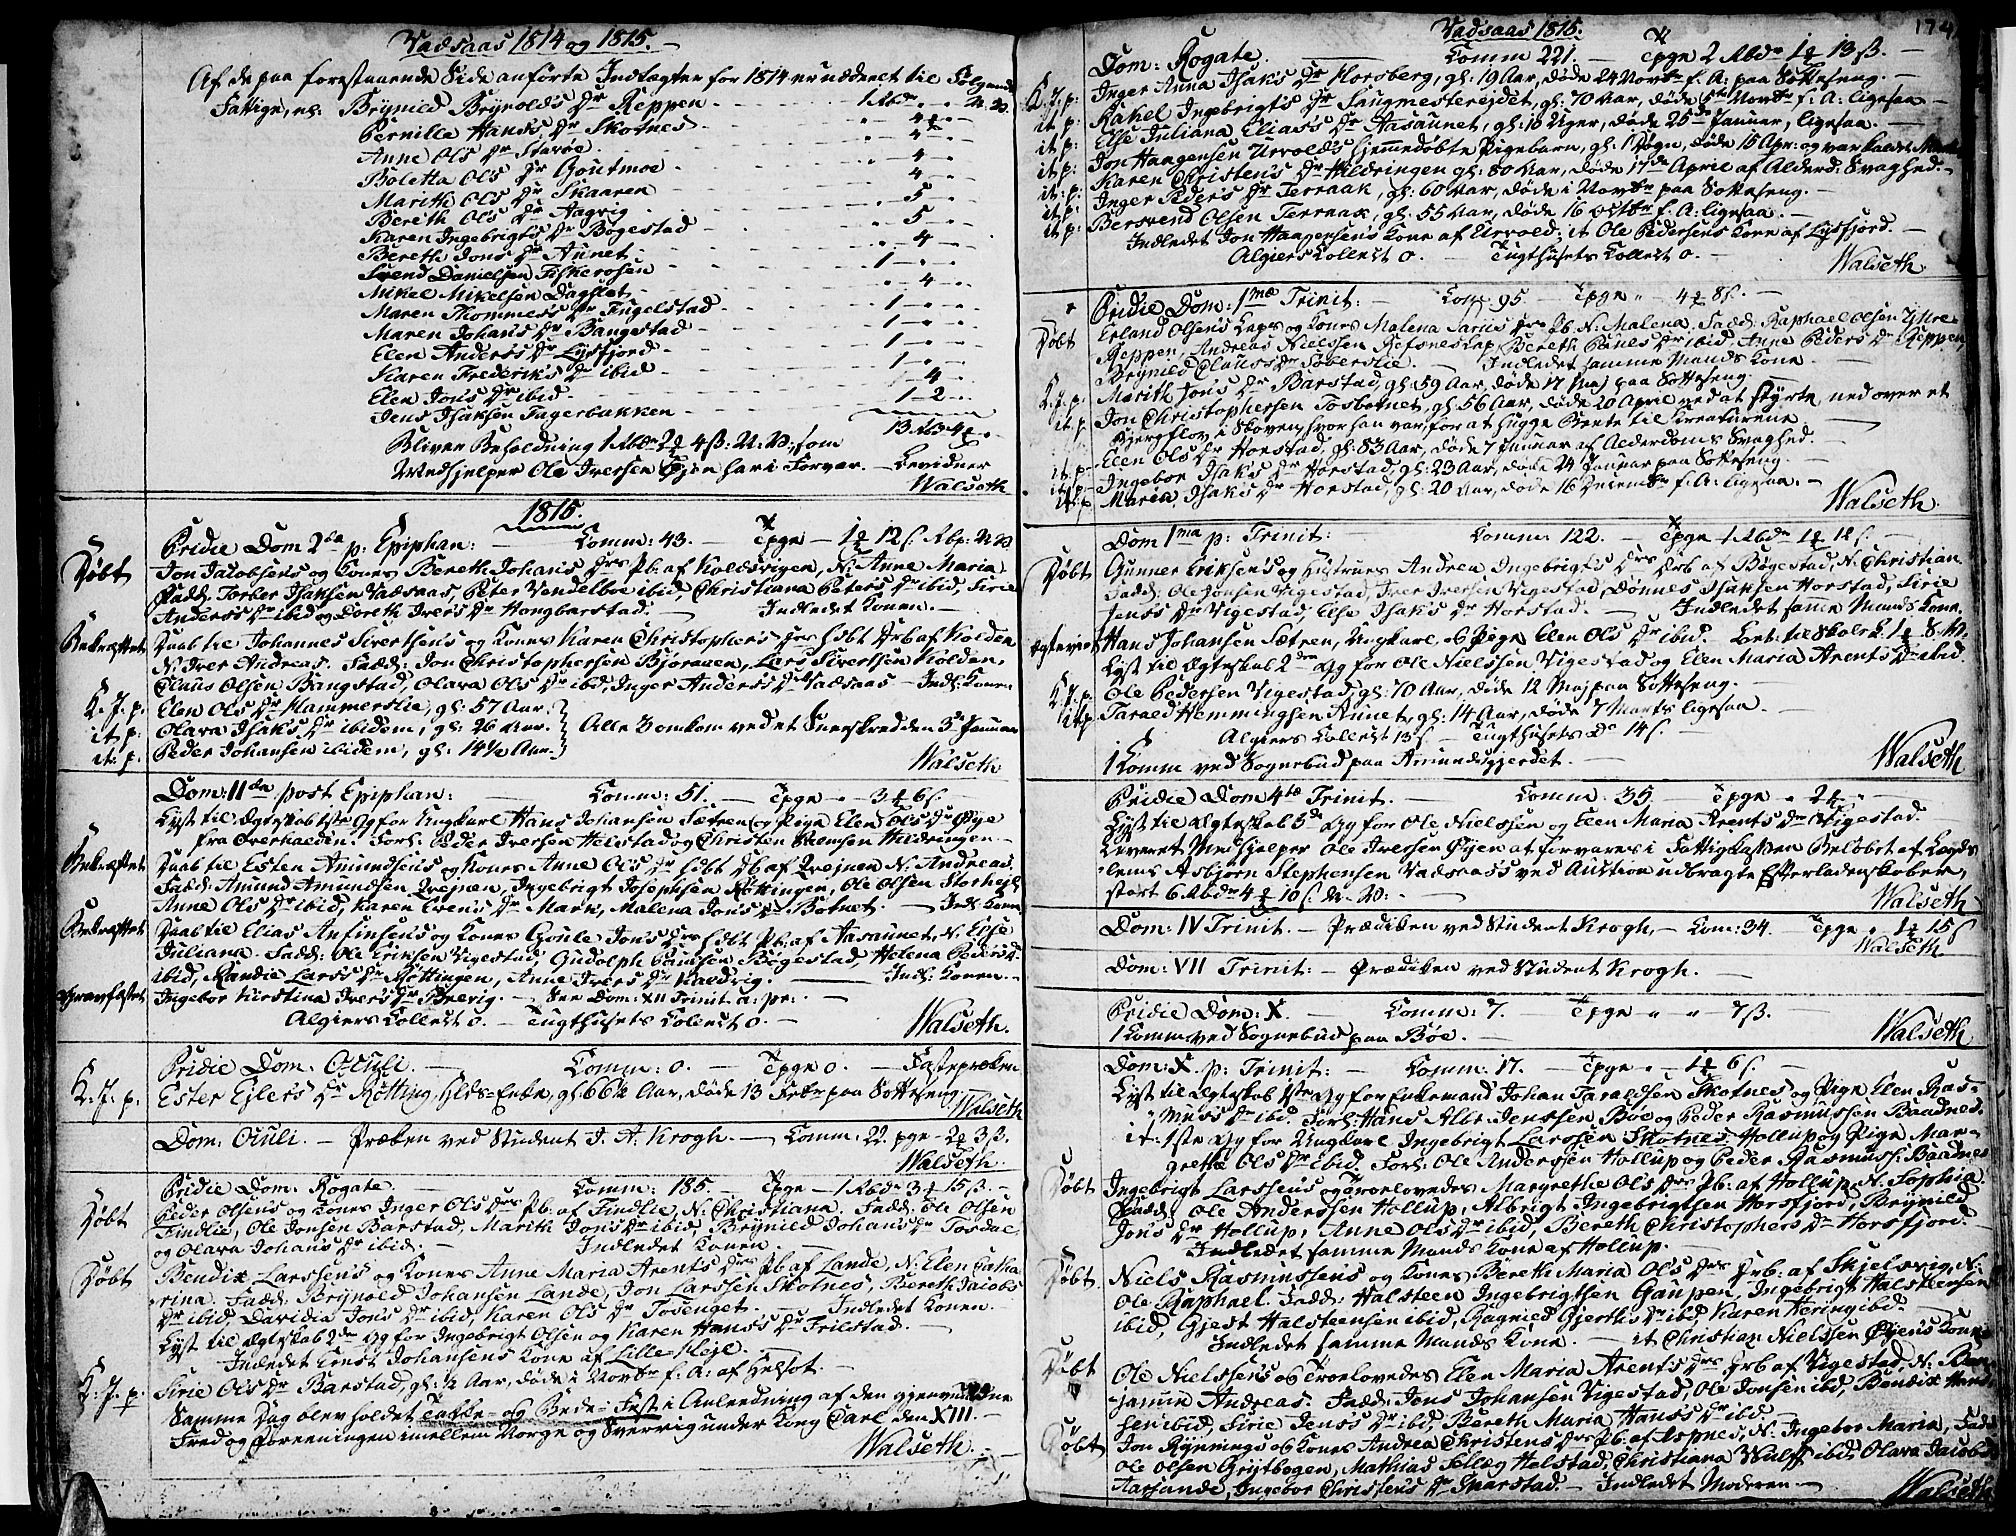 Vadsaas 1814 og 1815.
Af de paa forestaaende Side anførte Indtægter for 1814 er uddeelt til følgende
Fattige, nl: Brynild Brynolds Dr Reppen 1 Rbdr
Pernille Hans's Dr Skotnes 4
Anne Ols Dr Starøe 4
Boletta Ols Dr Goutmoe 4
Marith Ols Dr Skaaren 4
Bereth Ols Dr Aagvig 5
Karen Ingebrigts Dr Bogestad 5
Bereth Jons Dr Aunet 4
Svend Danielsen Fiskerosen 1
Mikel Mikelsen Dagslet 4
Maren Thommess Dr Fugelstad 1
Maren Johans Dr Bangestad 1
Elen Anders's Dr Lysfjord 1
Karen Frederiks Dr ibid 1
Elen Jons Dr ibid 4
Jens Isaksen Fagerbakken 1 2
Bliver Beholdning 1 Rbdr 2 4 ß: N: V:, som
Medhjelper Ole Iversen Øjen har i Forvar. Bevidner
Walseth
1815.
Pridie Dom 2da p: Epiphan: Comm: 43. Tpge 1 12 ß.
Døbt Jon Jacobsens og Kones Bereth Johans Drs Pb. af Kolsvigen, N: Anne Maria
Fadd: Torber Isaksen Vadsaas, Peter Vendelboe ibid, Christiana Peters Dr ibid, Sirie
Anders's Dr ibid og Doreth Ivers Dr Hongbarstad. Indledet Konen.
Bekræftet Daab til Johannes Sivertsens og Kones Karen Christophers Drs hdbt Drb af Kolden
N: Iver Andreas. Fadd: Jon Christophersen Bjøraaen, Lars Sivertsen Kolden,
Claus Olsen Bangstad, Olava Ols Dr ibid, Inger Anders's Dr Vadsaas Indl: Konen
K. J. p: Elen Ols Dr Hammerslie, gl: 57 Aar.
it p: Olava Isaks Dr ibidem, gl: 26 Aar. Alle 3 omkom ved et Sneeskred den 3de Januar
it. p. Peder Johansen ibidem, gl: 14½ Aar.
Walseth
Dom: II da post Epiphan: Comm: 51. Tpge 3 6 ß.
Lyst til Ægteskab 1ste Gg for Ungkarl Hans Johansen Sætren og Pige Elen Ols Dr Øye
fra Overhalden. Forl: Peder Iversen Helstad og Christen Hemsen Hildringen.
Bekræftet Daab til Esten Amundsens og Kones Anne Ols Dr hdbt Db af Qvejnen N: Andreas.
Fadd: Amund Amundsen Qvejnen, Ingebrigt Josephsen Røttingen, Ole Olsen Storhejl
Anne Ols Dr ibid, Karen Evens Dr Mark, Malena Jons Dr Botnet. Indl: Konen
Bekræftet Daab til Elias Anfinsens og Kones Goule Jons Drs hdbt Pb: af Aasaunet, N: Else
Juliana. Fadd: Ole Eriksen Vigestad, Gudolph Bøgestad, Helena Peders D.
ibid, Randie Lars's Dr Røttingen, Anne Ivers Dr Kaldvig. Indl: Konen.
Gravfæstet Ingebor Kirstina Ivers Dr Brevig. See Dom: XII Trinit a: pr:.
Algiers Collect 0. Tugthusets Collect 0.
Walseth.
Pridie Dom. Oculi. Comm: 0. Tpge 0. Fastepræken
K. J. p. Ester Ejlers Dr Røtting, gl. 66½ Aar, døde 13 Febr paa Sotteseng
Walseth
Dom: Oculi. Præken ved Student J. A. Krogh. Comm: 22. pge 2 3 ß.
Walseth.
Pridie Dom: Rogate. Comm: 185 Tpge 1 Rbdr 3 15 ß.
Døbt Peder Olsens og Kones Inger Ols Drs Pb. af Findlie, N: Christiana. Fadd: Ole Olsen
Findlie, Ole Jonsen Barstad, Marith Jons Dr ibid, Brynild Johans Dr Tosdal,
og Olava Johans Dr ibid. Indledet Konen
Døbt Bendix Larssens og Kones Anne Maria Arents Drs Pb af Lande, N: Elen Catha
rina. Fadd: Brynold Johansen Lande, Jon Larssen Skotnes, Bereth Jacobs
Dr ibid, Davidia Jons Dr ibid, Karen Ols Dr Tosenget. Indledet Konen.
Lyst til Ægteskab 2den Gg for Ingebrigt Olsen og Karen Hans's Dr Frilstad.
Indledet Ernst Johansens Kone af Lille Heje.
K. J. p. Sirie Ols Dr Barstad, gl: ½ Aar, døde i Novbr f: A: af Helsot.
Samme Dag blev holdet Takke- og Bede-Fest i Anledning af den gjenvundne
Fred og Foreeningen imellem Norge og Sverrig under Kong Carl den XIII.
Walseth.
174
Vadsaas 1815.
Dom: Rogate. Comm 221. Tpge 2 Rbdr 1 13 ß.
K. J. p: Inger Anna Isaks Dr Horsberg, gl: 19 Aar, døde 24 Novbr f: A: paa Sotteseng.
it p: Rahel Ingebrigts Dr Saugmesterejdet, gl: 70 Aar, døde Novbr f: A: ligesaa
it p: Else Juliana Elias's Dr Aasaunet, gl: 18 Uger, døde 25de Januar, ligesaa.
it p: Jon Haagensen Urvolds hjemmedøbte Pigebarn, gl: 1 Døgn, døde 15 Apr: og var kaldet
it: p: Karen Christens Dr Hildringen gl: 80 Aar, døde 17de April af Alderd: Svaghed.
it p: Inger Peders Dr Terraak, gl: 60 Aar, døde i Novbr paa Sotteseng.
it p: Bersvend Olsen Terraak, gl: 55 Aar, døde 16 Octbr f: A: ligesaa.
Indledet Jon Haagensens Kone af Urvold; it Ole Pedersens Kone af Lysfjord.
Algiers Collect 0. Tugthusets Collect 0.
Walseth.
Pridie Dom: 1mæ Trinit: Com: 95. Tpge 4 8 ß.
Døbt Erland Olsens Laps og Kones Malena Drs Pb. N: Malena. Fadd: Raphael Olsen
Reppen, Andreas Nielssen Refsnes Lap, Bereth Dr ibid, Anne Peders Dr Reppen,
Brynild Claus's Dr Soberslie. Indledet samme Mands Kone
K. J. p. Marith Jons Dr Barstad, gl: 59 Aar, døde 17 Maj paa Sotteseng
it p Jon Christophersen Tosbotnet, gl: 56 Aar, døde 20 April ved at styrte ned over et
Bjergflov i Skoven, hvor han var, for at hugge Beete til Kreaturene
it p: Elen Ols Dr Horstad, gl: 83 Aar, døde 7 Januar af Alderdoms Svaghed.
it p: Ingebor Isaks Dr Horstad, gl: 23 Aar, døde 24 Januar paa Sotteseng.
it p Maria Isaks Dr Horstad, gl: 20 Aar, døde 16 Decembr f: A: ligesaa.
Walseth.
Dom 1ma p: Trinit: Comm: 122. Tpge 1 Rbdr 1 12 ß.
Døbt Gunner Eriksens og Hustrues Andrea Ingebrigts Drs Drb af Bøgestad, N: Christian
Fadd: Ole Jonsen Vigestad, Iver Iversen Vigestad, Dønnes Isaksen Horstad, Sirie
Jens's Dr Vigestad, Else Isaks Dr Horstad. Indledet samme Mands Kone.
Ægteviet Hans Johansen Sætren, Ungkarl, og Pige Elen Ols Dr ibid.
Lyst til Ægteskab 2den Gg for Ole Nielssen Vigestad og Elen Maria Arents Dr ibid.
K. J. p: Ole Pedersen Vigestad, gl: 70 Aar, døde 12 Maj paa Sotteseng.
it p Tarald Hemmingsen Aunet, gl: 14 Aar, døde 7 Marts ligesaa.
Algiers Collect 13 ß Tugthusets Do 14 ß.
1 Komm ved Sognebud paa Amundsgjerdet.
Walseth
Pridie Dom 4tæ Trinit. Comm: 35 Tpge 2
Lyst til Ægteskab 3de Gg for Ole Nielssen og Elen Maria Arents Dr Vigestad.
Leveret Medhjelper Ole Iversen Øjen at forvare i Fattigkassen Beløbet af Lægds
lems Asbjørn Stephensen Vadsaas's ved Auction udbragte Efterladenskaber,
stort 6 Rbdr 4 10 ß. N. V.
Walseth
Dom: IV Trinit. Prædiken ved Student Krogh, Com: 34. Tpge 1 15 ß
Walseth
Dom: VII Trinit: Prædiken ved Student Krogh.
Pridie Dom: X. Comm: 7. Tpge 7 ß.
1 Komm ved Sognebud paa Bøe.
Walseth
Dom: X. p: Trinit: Comm: 17. Tpge 1 6 ß.
Lyst til Ægteskab 1ste Gg for Enkemand Johan Taraldsen Skotnes og Pige Elen Ras-
muss Dr ibid. Forl: Hans Albr Jenssen Bøe og Peder Rasmussen Baadnes.
it: 1ste Gg for Ungkarl Ingebrigt Larssen Skotnes Hollup og Pige Mar-
grethe Ols Dr ibid. Forl: Ole Anderssen Hollup og Peder Rasmuss: Baadnes
Døbt Ingebrigt Larssens og Troelovedes Margrethe Ols Drs Pb: af Hollup, N: Sophia.
Fadd: Ole Anderssen Hollup, Albrigt Ingebrigtsen Horsfjord, Brynild
Jons Dr Hollup, Anne Ols Dr ibid, Bereth Christophers Dr Horsfjord.
Indledet samme Mands Kone af Hollup.
Døbt Niels Rasmussens og Kones Bereth Maria Ols Drs Drb: af Skjelsvig, N:
Ole Raphael. Fadd: Halsteen Ingebrigtsen Gaupen, Ingebrigt Halsteensen
ibid, Gjest Halsteensen ibid, Ragnild Gjerts Dr ibid, Karen Hering ibid.
Indledet samme Mands Kone. it Christian Nielssen Øyens Kone
Døbt Ole Nielssens og Troelovedes Elen Maria Arents Drs Drb af Vigestad, N: Ben-
jamin Andreas. Fadd: Jens Johansen Vigestad, Ole Jonsen ibd, Bendix Hans-
sen ibid, Sirie Jens's Dr ibid, Bereth Maria Hans's Dr ibid.
Døbt Jon Rynnings og Kones Andrea Christens Drs Pb. af Aspnes, N: Ingebor Maria, Fadd:
Ole Olsen Grytbogen, Mathias Sellæg Halstad, Christiana Wulff ibid, Olava Jacobs D
Aarsande, Ingebor Christens Dr Skarstad. Indledet Moderen
Walseth